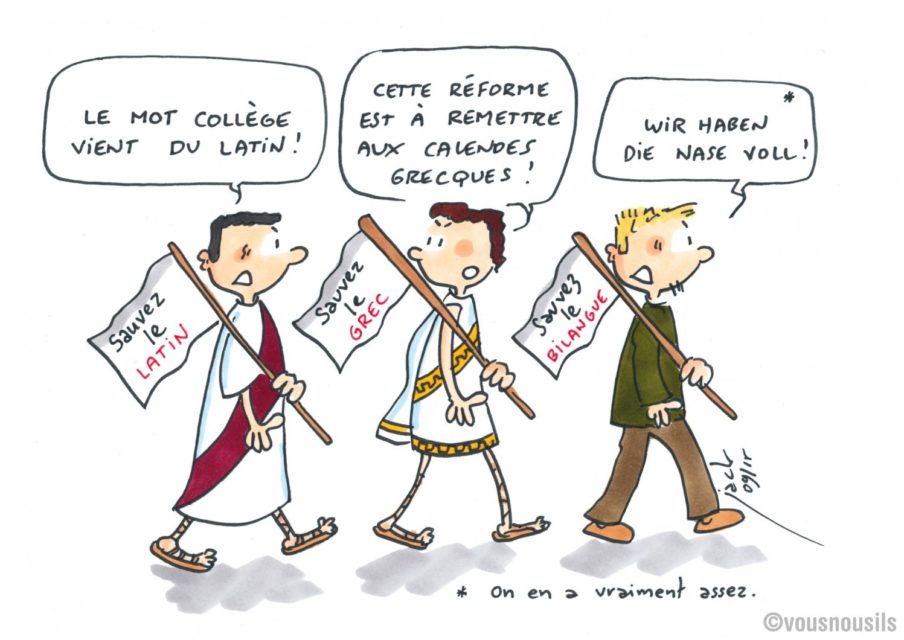 LE MOT COLLÈGE
VIENT DU LATIN !
CETTE RÉFORME
EST À REMETTRE
AUX CALENDES
GRECQUES !
*
WIR HABEN
DIE NASE VOLL !
Sauvez
le
LATIN
Sauvez
le
GREC
Sauvez
le
BILANGUE
jack
09/15
* On en a vraiment assez.
©vousnousils